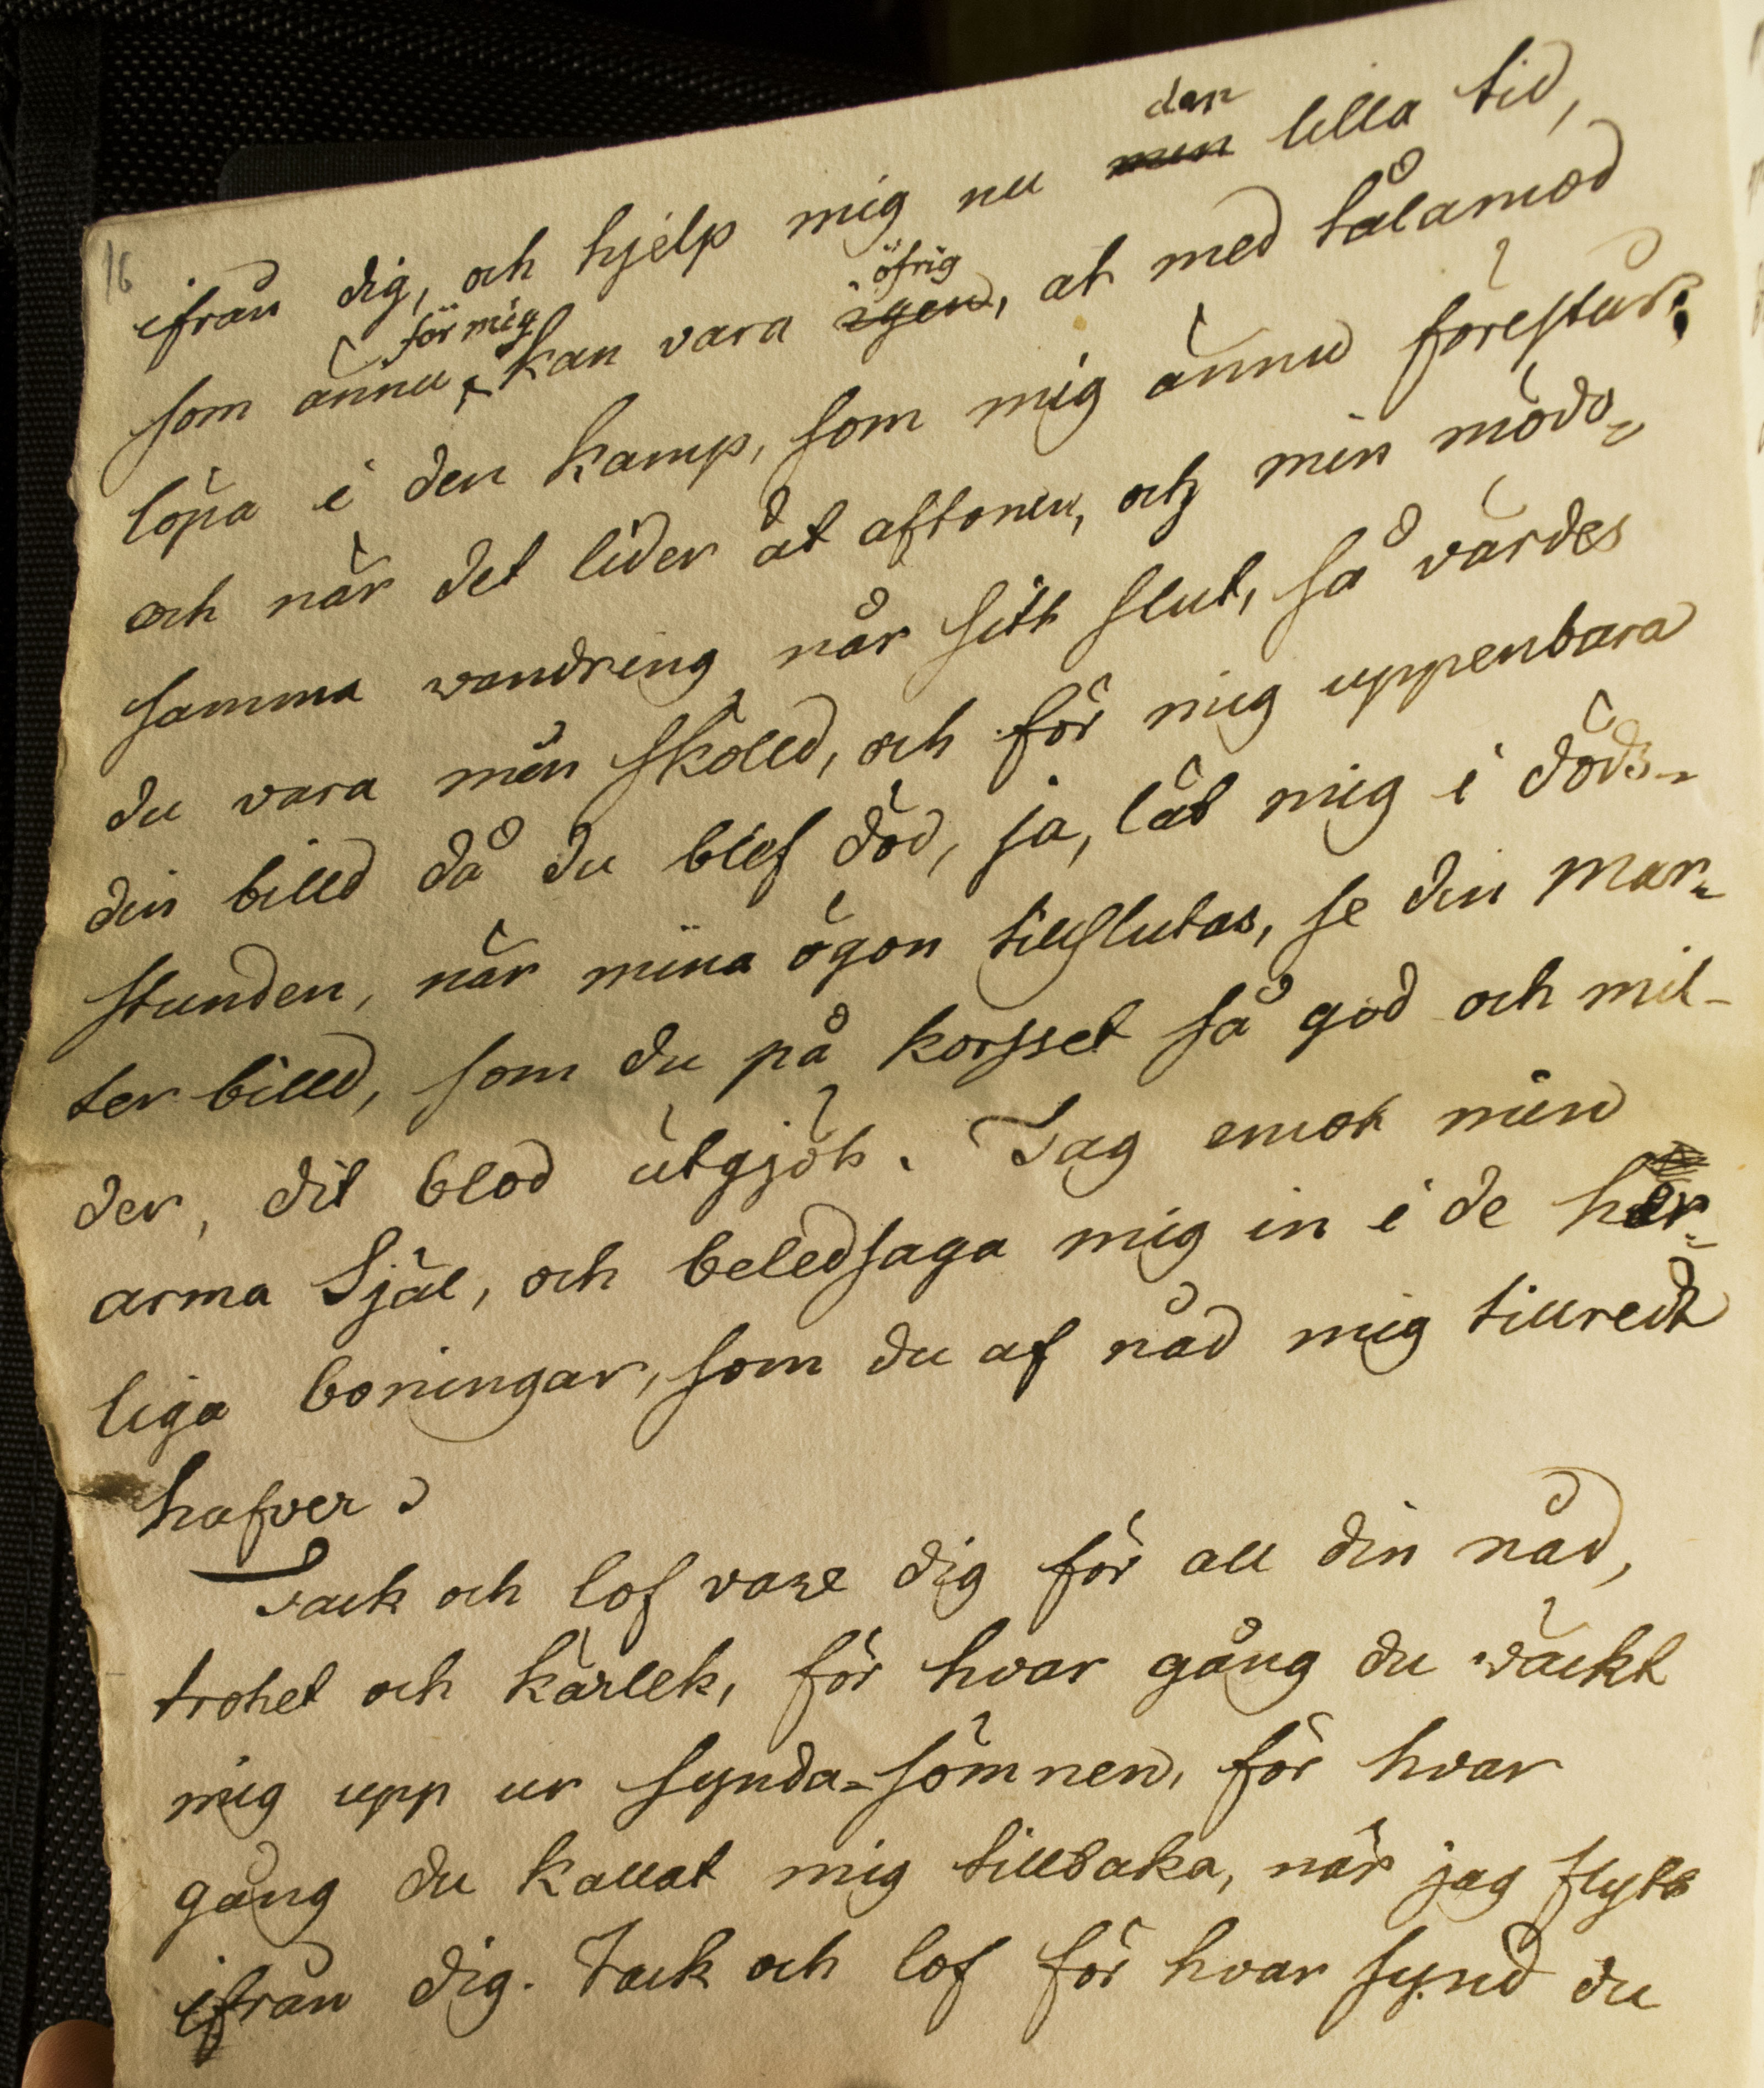 16
den
ifrån dig, och hjelp mig nu min lilla tid,
för mig öfrig
som ännu kan vara igen, at med tålamod
löpa i den kamp, som mig ännu förestår;
och när det lider åt aftonen, och min mödo-
samma wandring når sitt slut, så värdes
du vara min sköld, och för mig uppenbara
din billd då du blef död, ja, låt mig i döds-
stunden, när mina ögon tillslutas, se din mar-
ter billd, som du på korsset så god och mil-
der, dit blod utgjöt. Tag emot min
arma Själ, och beledsaga mig in i de här-
liga boningar, som du af nåd mig tillredt
hafver.
Tack och lof vare dig för all din nåd,
trohet och kärlek, för hvar gång du väckt
mig upp ur synda-sömnen, för hvar
gång du kallat mig tillbaka, när jag flytt
ifrån dig. Tack och lof för hvar synd du